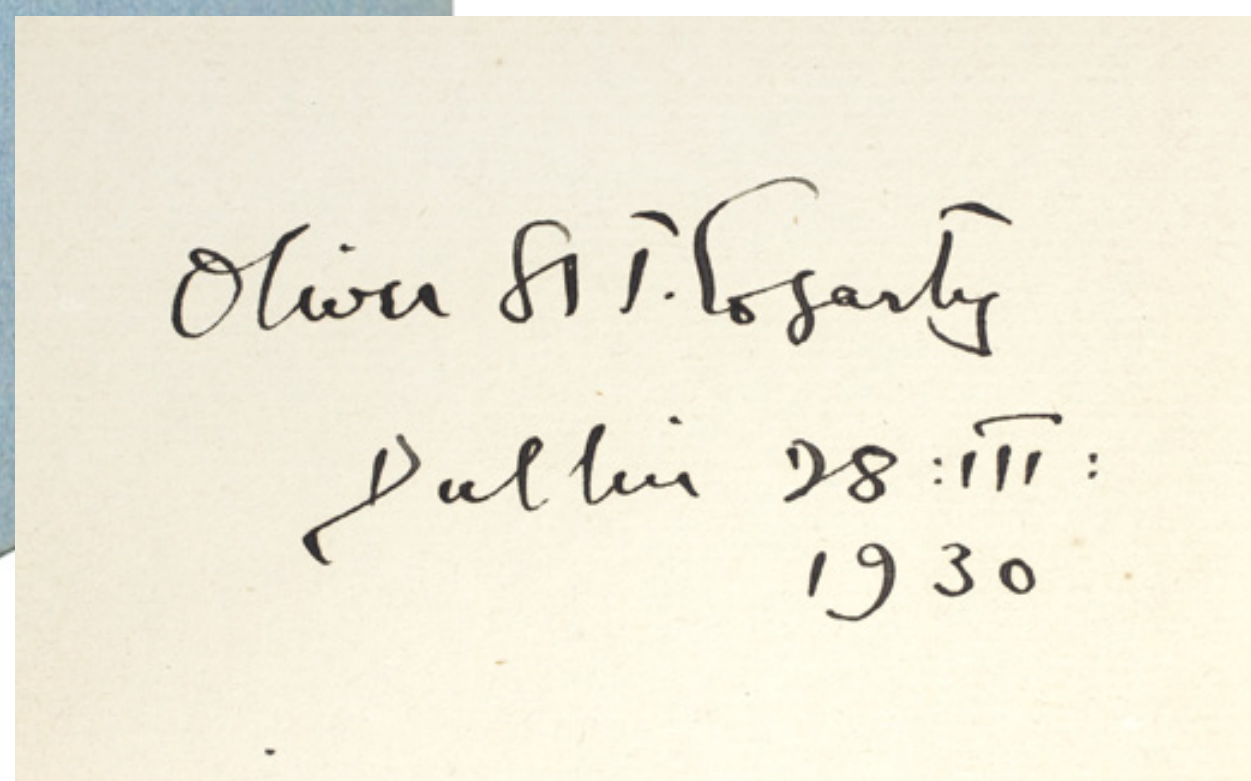 Oliver St J. Gogarty
Dublin 28:III:
1930